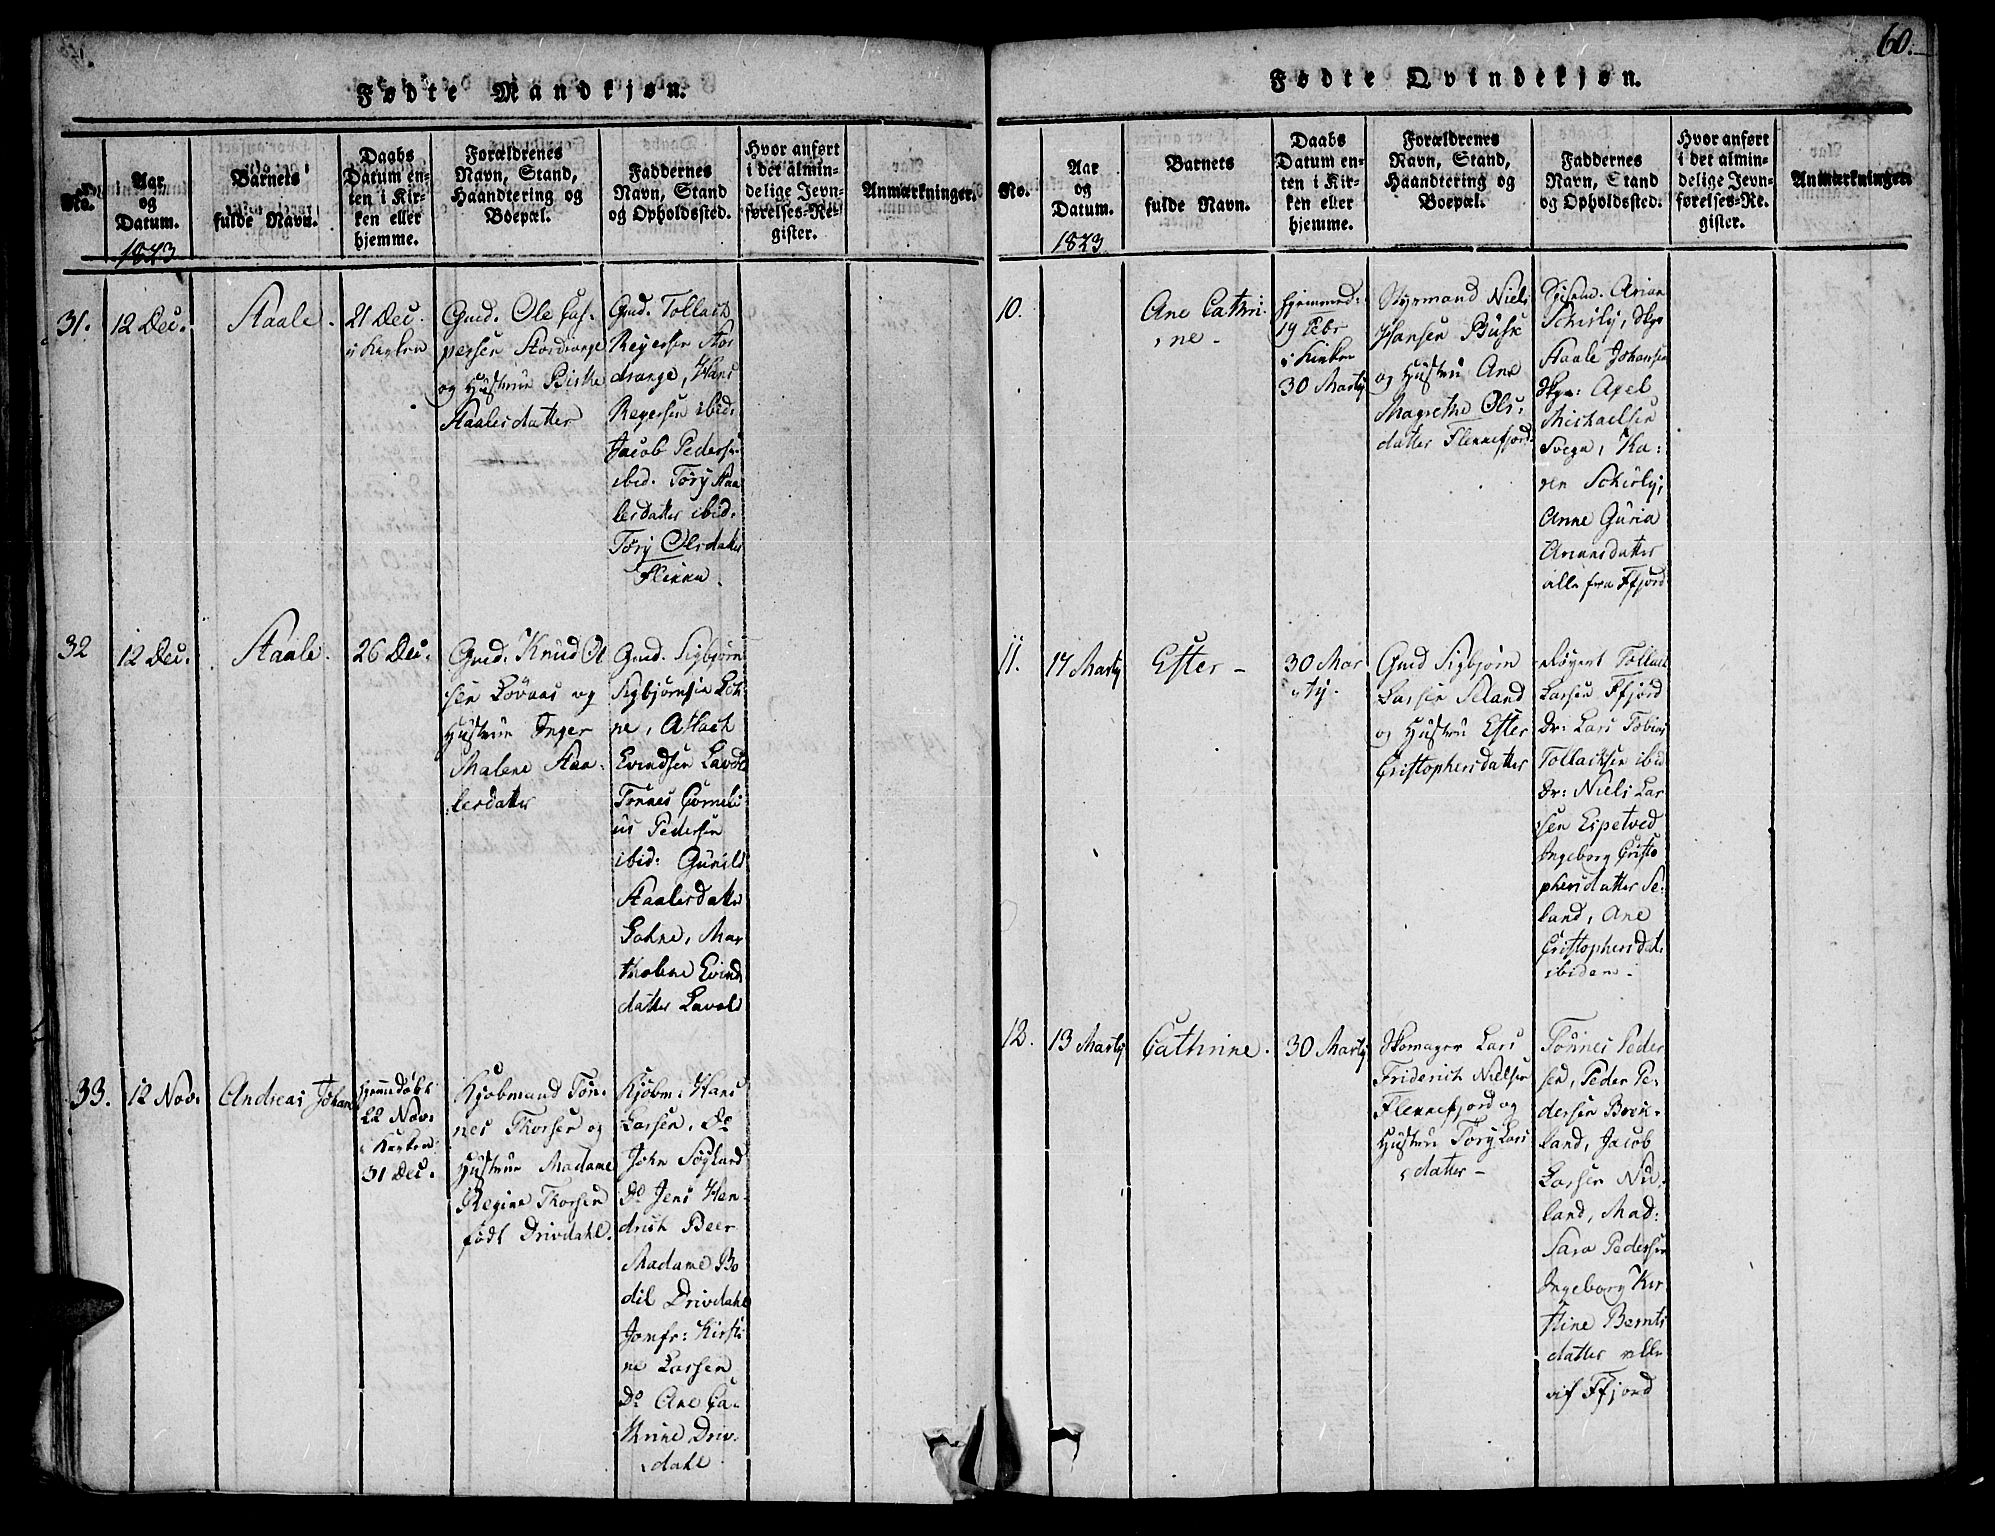 60.
Fødte Mandkjøn.
No.
Aar
og
Datum.
1823
Barnets
fulde Navn.
Daabs
Datum en-
ten i Kir-
ken eller
hjemme.
Forældrenes
Navn, Stand,
Haandtering og
Boepæl.
Faddernes
Navn, Stand
og Opholdssted.
Hvor anført
i det almin-
delige Jevn-
førelses-Re-
gister.
Anmærkninger.
31.
12 Dec.
Staale.
21 Dec.
i Kirken
Gmd. Ole Jas-
persen Stordrange
og Hustrue Birthe
Staalesdatter
Gmd. Tollach
Reyersen Stor
drange, Hans
Reyersen ibid:
Jacob Peders:
ibid. Tøry Staa
lesdatter ibid.
Tøry Olsdatter
Flikka.
32
12 Dec.
Staale.
26 Dec.
Gmd. Knud Ol
sen Løvaas og
Hustrue Inger
Malene Staa-
lesdatter
Gmd. Sigbjørn
Sigbjørnsen Loh
ne, Atlach
Evindsen Lavold
Tønnes Corneli
us Pedersen
ibid: Gunild
Staalesdatter
Lohne, Mar
tholene Evinds
datter Lavold
33.
12 Nov.
Andreas Johan
Hjemmedøbt
22 Nov.
i Kirken
31 Dec.
Kjøbmand Tøn-
nes Thorsen og
Hustrue Madame
Regine Thorsen
født Drivdahl.
Kjøbm: Hans
Larsen, Do
John Søyland
Do Jens Hen-
drich Beer
Madame Bo
dil Drivdahl
Jomfr: Kirsti
ne Larsen
Do Ane Ca-
thrine Driv-
dahl
Fødte Qvindekjøn.
No.
Aar
og
Datum.
1823
Barnets
fulde Navn.
Daabs
Datum en-
ten i Kir-
ken eller
hjemme.
Forældrenes
Navn, Stand,
Haandtering og
Boepæl.
Faddernes
Navn, Stand
og Opholdssted.
Hvor anført
i det almin-
delige Jevn-
førelses-Re-
gister.
Anmærkninger.
10.
Ane Cathri-
ne -
hjemmed:
19 Febr
i Kirken
30 Marty
Styrmand Niels
Hansen Busk
og Hustru Ane
Magrethe Ols-
datter Flekkefjord
Arian
Schirly,
Staale Johansen
Axel
Michaelsen
Svega, Ka-
ren Schirly,
Anne Guria
Ariansdatter
alle fra Ffjord
11.
17 Marty
Ester -
30 Mar
ty.
Gmd Sigbjørn
Larsen Seland
og Hustru Ester
Cristophersdatter
Tollach
Larsen Ffjord
Dr: Lars Tobias
Tollachsen ibid
Dr: Niels Lar
sen Espetved
Ingeborg Cristo
phersdatter Se-
land, Ane
Cristophersdat.
ibidem -
12.
13 Marty
Cathrine.
30 Marty
Skomager Lars
Friderich Nielsen
Flekkefjord og
Hustru Tøry Lars
datter -
Tønnes Peder
sen, Peder Pe-
dersen Brek-
land, Jacob
Larsen Nu-
land, Mad:
Sara Pedersen
Ingeborg Kir
stine Bernts
datter alle
af Ffjord